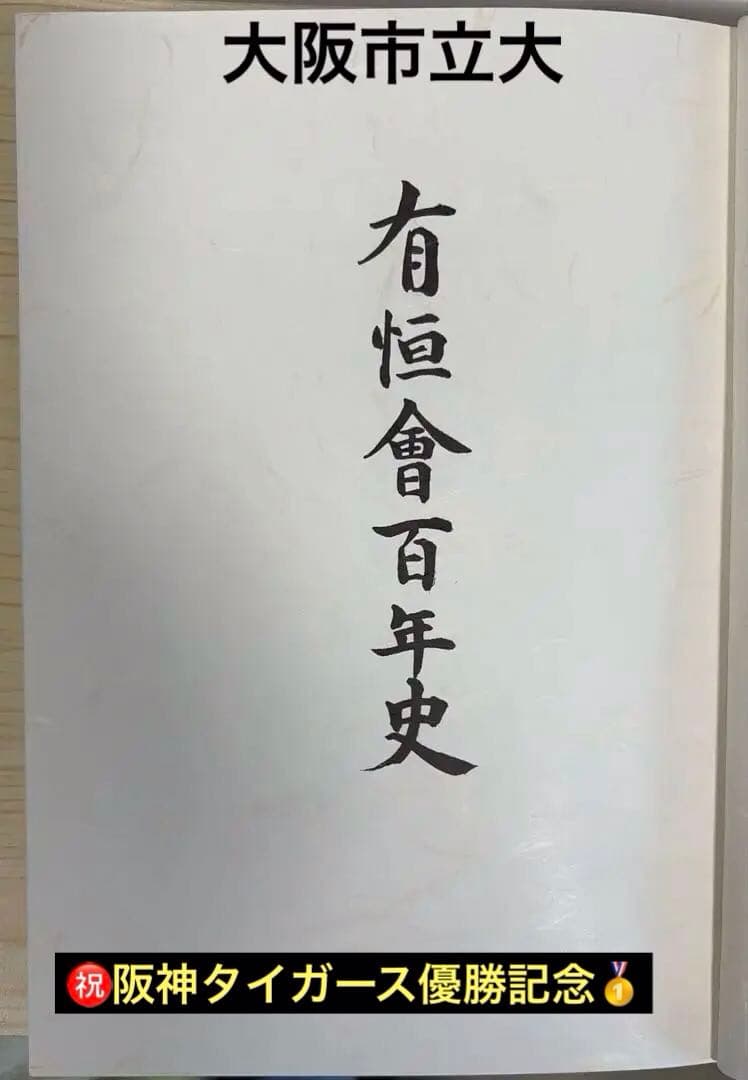 大阪市立大
有恒會百年史
㊗阪神タイガース優勝記念🥇